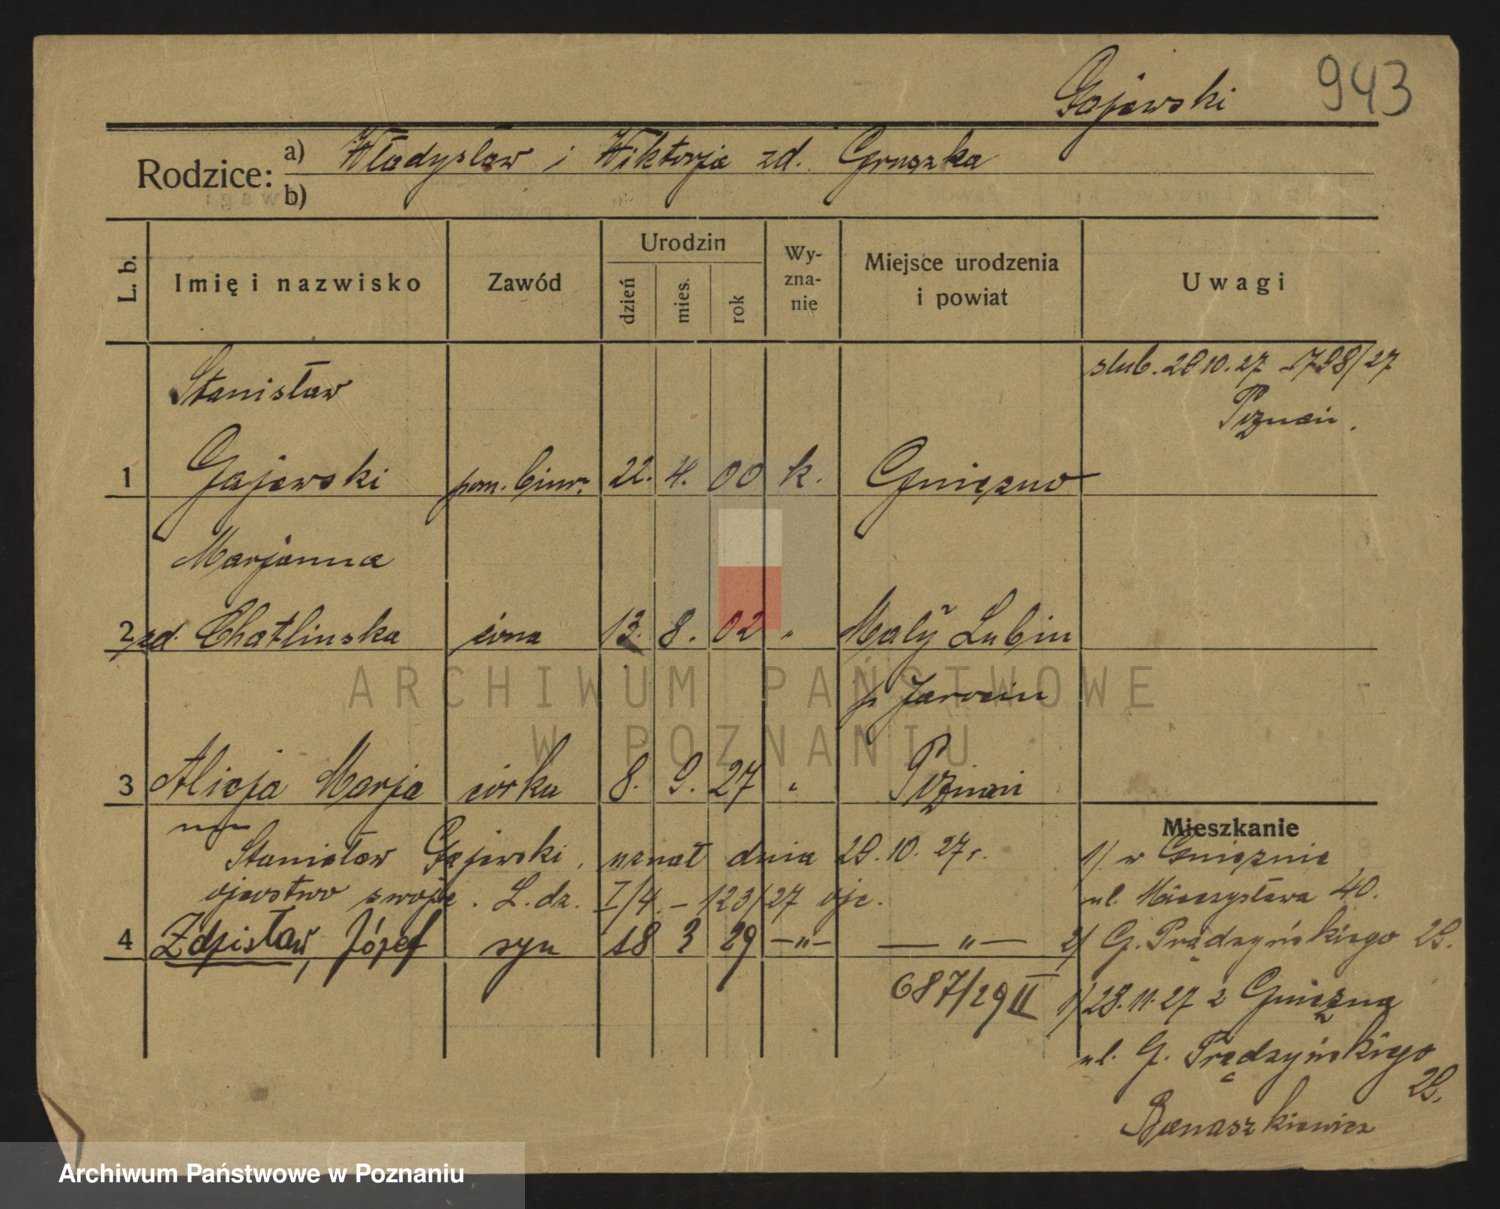 Gajewski 943
Rodzice: a) Władysław i Wiktorja zd. Gruszka
b)
L. b. Imię i nazwisko Zawód Urodzin dzień mies. rok Wy-zna-nie Miejsce urodzenia i powiat Uwagi
Stanisław ślub. 29.10.27 -1798/27
Poznań.
1 Gajewski pom. biur. 22. 4. 00 k. Gniezno
Marjanna
2 zd. Chatlinska żona 13. 8. 02 " Mały Lubin
p. Jarocin
3 Alicja Marja córka 8. 9. 27 " Poznań
Mieszkanie
Stanisław Gajewski, uznał dnia 29.10.27 r. 1/ w Gnieźnie
ojcostwo swoje. L. dz. I/4. - 123/27 ul. Mieczysława 40.
4 Zdzisław, Józef syn 18 3 29 -"- -"- 2/ G. Prądzyńskiego 29.
687/29 II 1/ 28.11.27 z Gniezna
ul. G. Prądzyńskiego
29.
Banaszkiewicz
ARCHIWUM PAŃSTWOWE
W POZNANIU
Archiwum Państwowe w Poznaniu